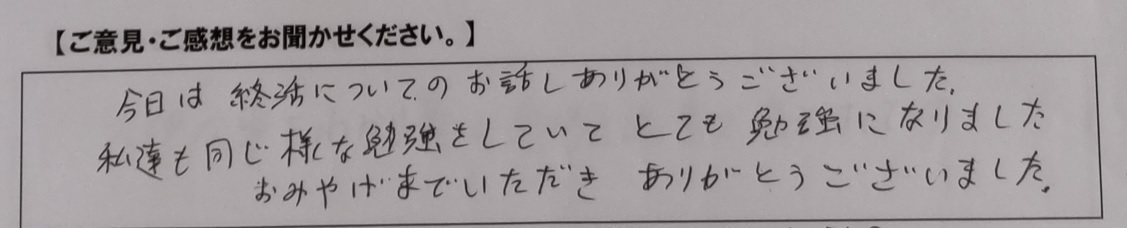 【ご意見・ご感想をお聞かせください。】
今日は 終活についてのお話しありがとうございました.
私達も同じ様な勉強をしていて とても 勉強になりました
おみやげまでいただき ありがとうございました.